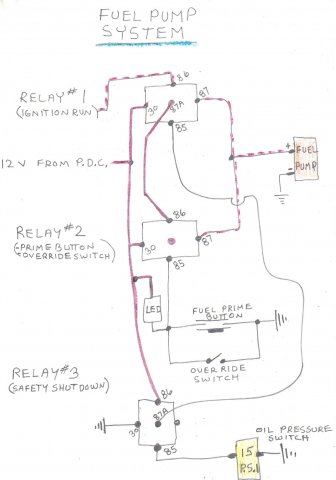 FUEL PUMP
SYSTEM
RELAY #1
(IGNITION RUN)
86
30
87A
87
85
12 V FROM P.D.C.
+
FUEL
PUMP
-
RELAY #2
(-PRIME BUTTON
-OVERRIDE SWITCH)
86
30
87
85
LED
FUEL PRIME
BUTTON
OVERRIDE
SWITCH
RELAY #3
(SAFETY SHUTDOWN)
86
30
87A
85
OIL PRESSURE
SWITCH
15
P.S.I